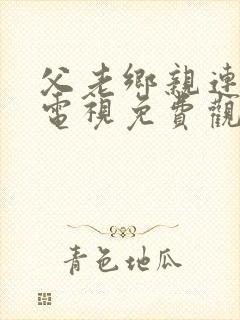 父老鄉親連
電視免費觀
青色地瓜